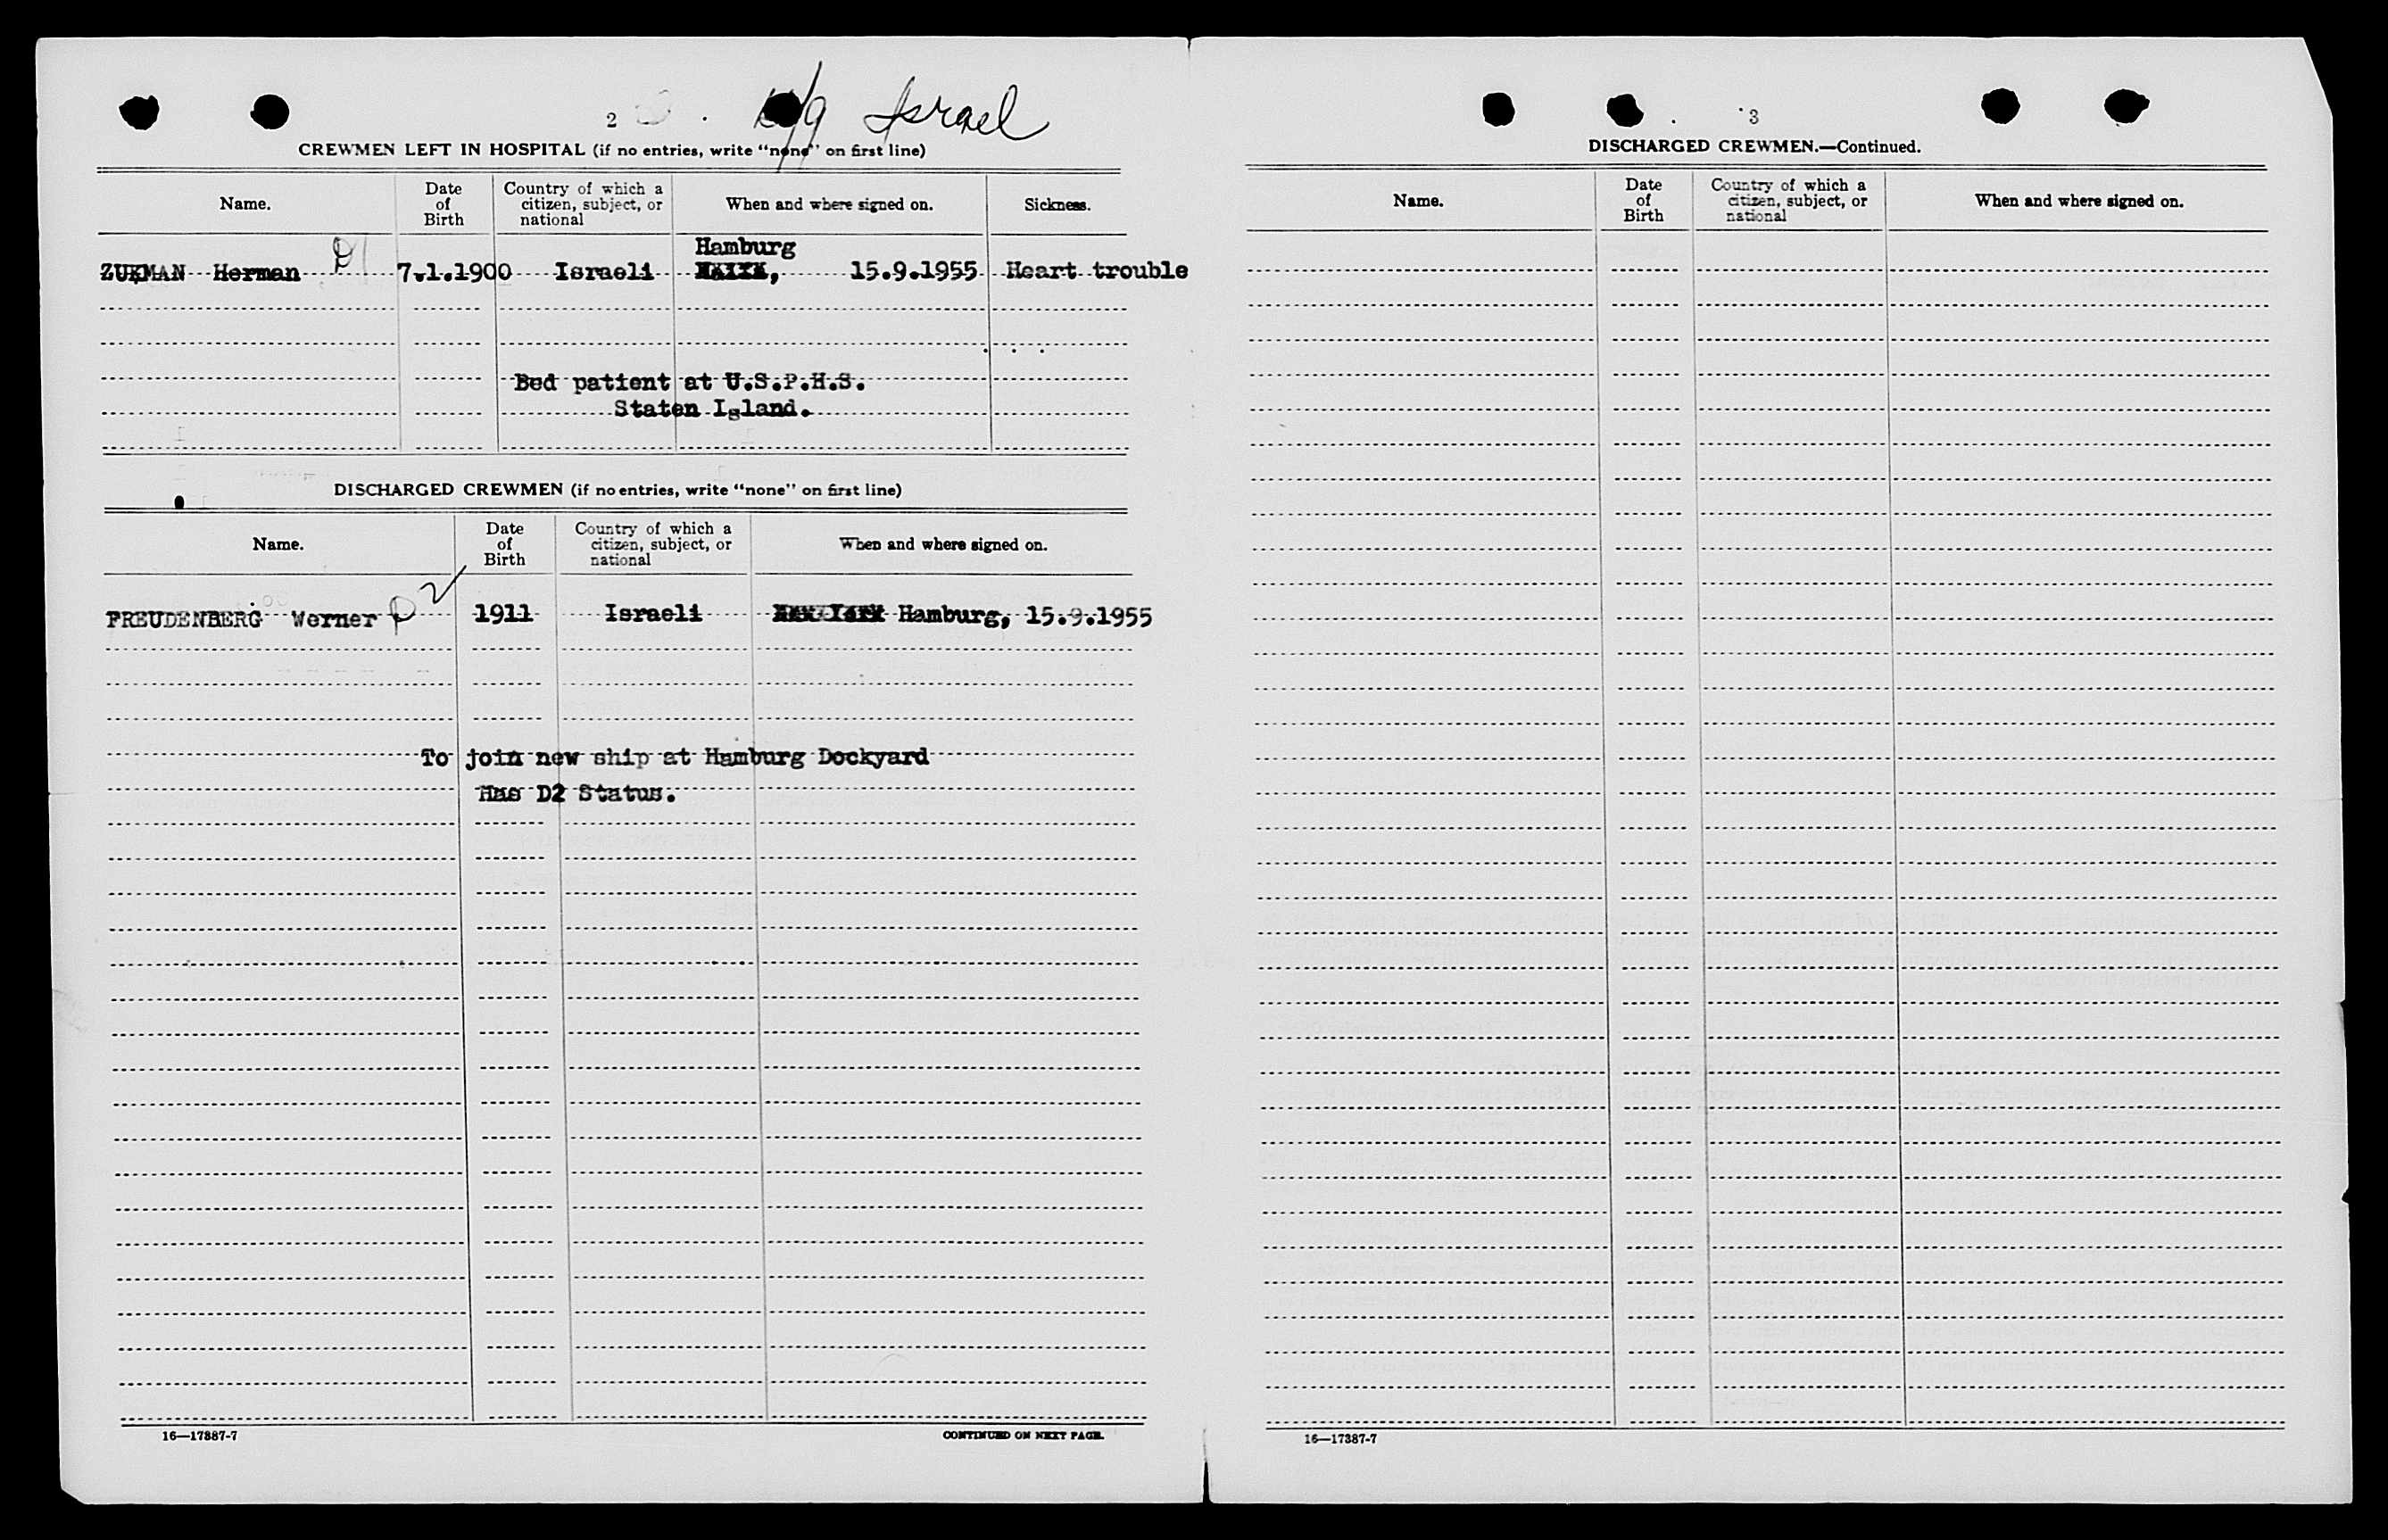 2
Israel
CREWMEN LEFT IN HOSPITAL (if no entries, write “none” on first line)
Name.
Date of Birth
Country of which a citizen, subject, or national
When and where signed on.
Sickness.
Hamburg
ZUKMAN Herman D1 7.1.1900 Israeli 15.9.1955 Heart trouble
Bed patient at U.S.P.H.S.
Staten Island.
DISCHARGED CREWMEN (if no entries, write “none” on first line)
Name.
Date of Birth
Country of which a citizen, subject, or national
When and where signed on.
FREUDENBERG Werner D 2 1911 Israeli Hamburg, 15.9.1955
To join new ship at Hamburg Dockyard
Has D2 Status.
16—17887-7
CONTINUED ON NEXT PAGE.
3
DISCHARGED CREWMEN.—Continued.
Name.
Date of Birth
Country of which a citizen, subject, or national
When and where signed on.
16—17387-7